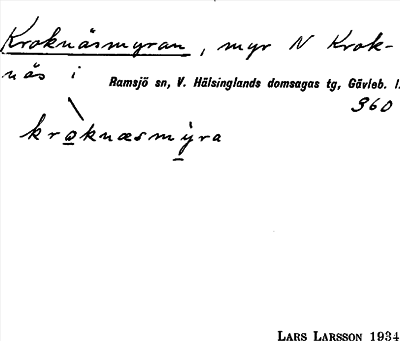 Kroknäsmyran, myr N Krok-
näs i
Ramsjö sn, V. Hälsinglands domsagas tg, Gävleb. l.
360
kroknæsmyra
LARS LARSSON 1934